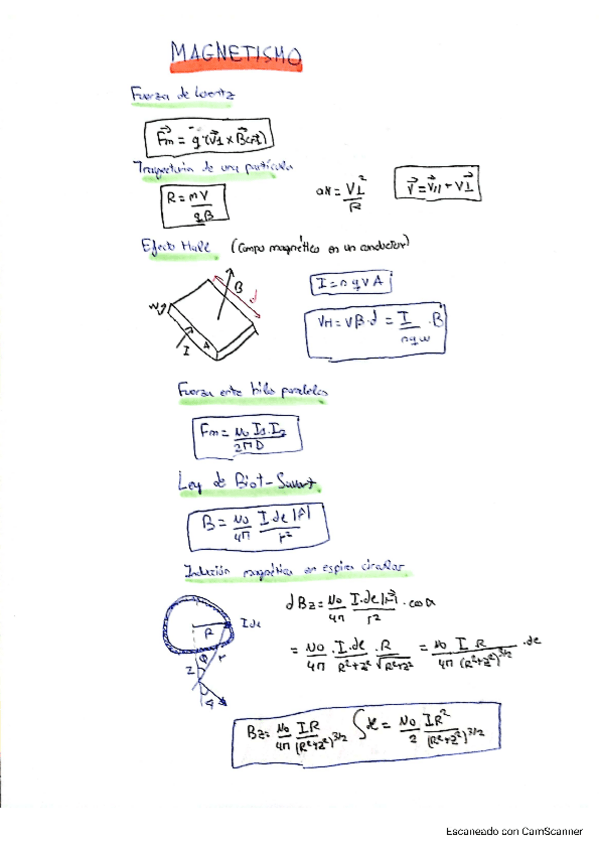 MAGNETISMO
Fuerza de Lorentz
F⃗m = q (v⃗⊥ x B⃗ext)
Trayectoria de una partícula
R = mV / qB
an = V⊥² / R
V⃗ = V⃗∥ + V⃗⊥
Efecto Hall (Campo magnético en un conductor)
B
d
W
I
A
I = n q V A
VH = VB·d = I / nqw · B
Fuerza entre hilos paralelos
Fm = μ0 I1·I2 / 2πD
Ley de Biot-Savart
B = μ0/4π I dl |r̂| / r²
Inducción magnética en espira circular
R
I dl
z
r
dBz = μ0/4π I·dl|r̂| / r² · cosα
= μ0/4π · I·dl / R²+z² · R / √R²+z² = μ0/4π I R / (R²+z²)^3/2 · dl
Bz = μ0/4π IR / (R²+z²)^3/2 ∫dl = μ0/2 IR² / (R²+z²)^3/2
Escaneado con CamScanner